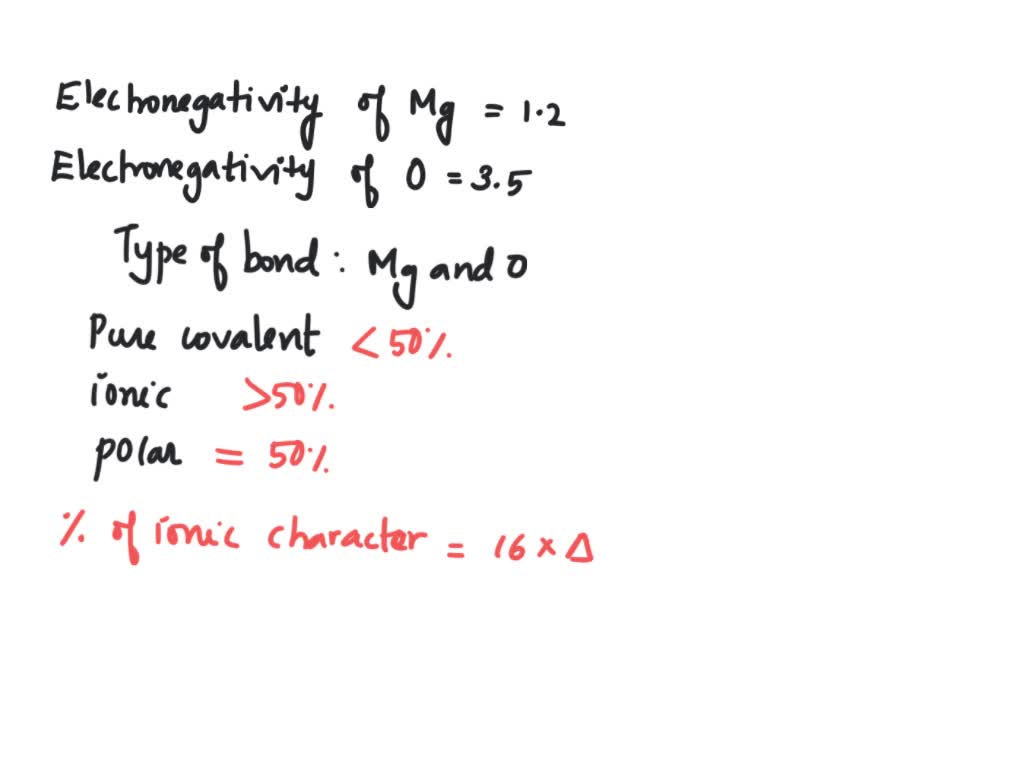 Electronegativity of Mg = 1.2
Electronegativity of O = 3.5
Type of bond : Mg and O
Pure covalent < 50%.
ionic > 50%.
polar = 50%.
% of ionic character = 16 × Δ